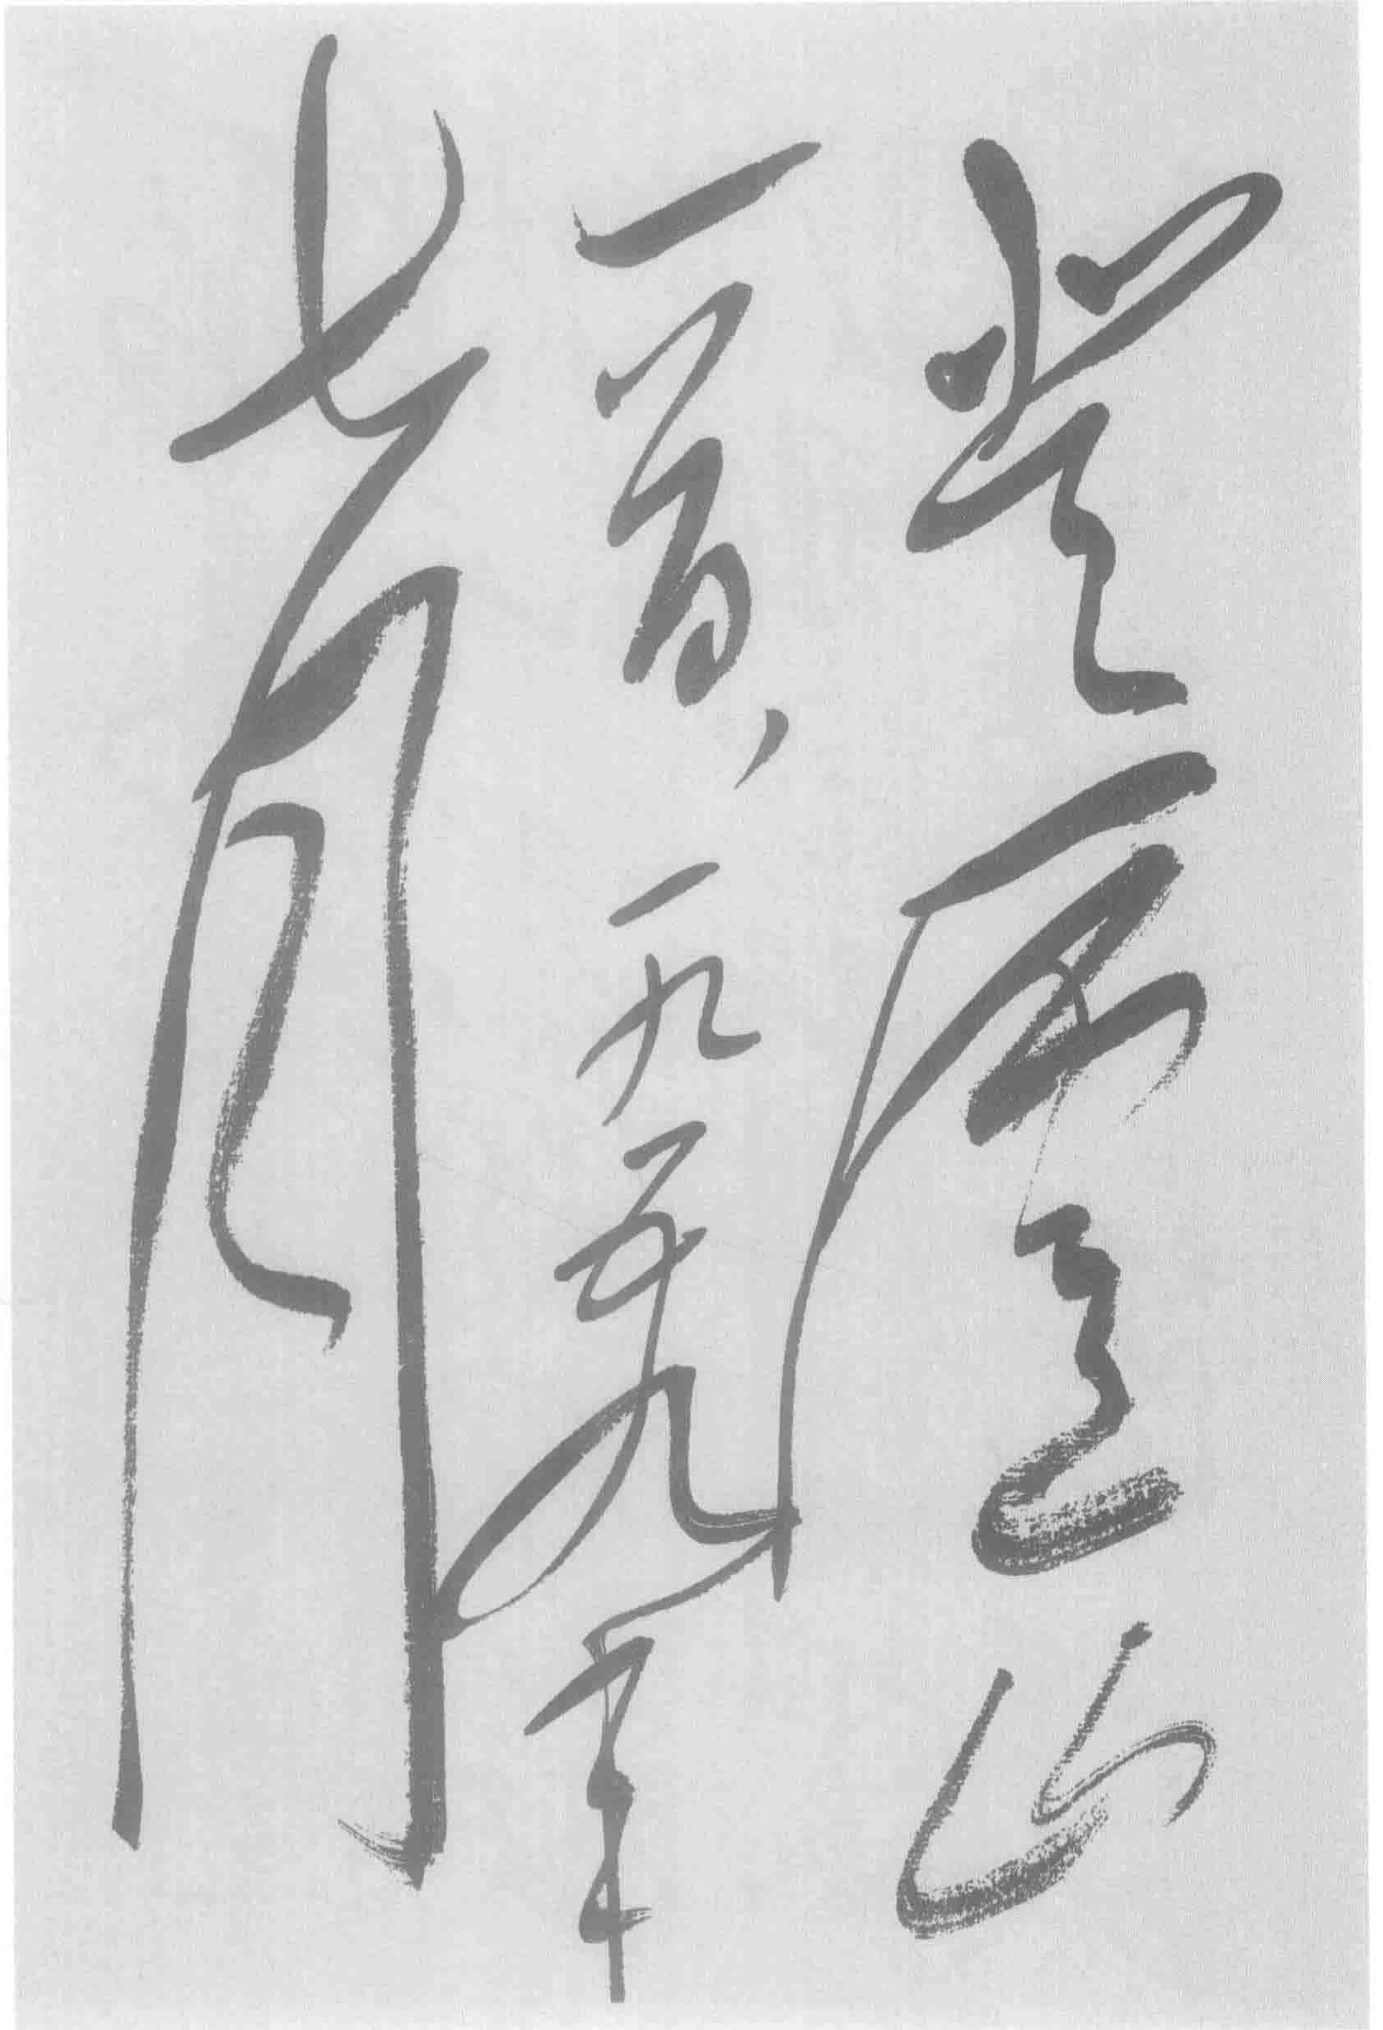 登廬山
一首，一九五九年
七月